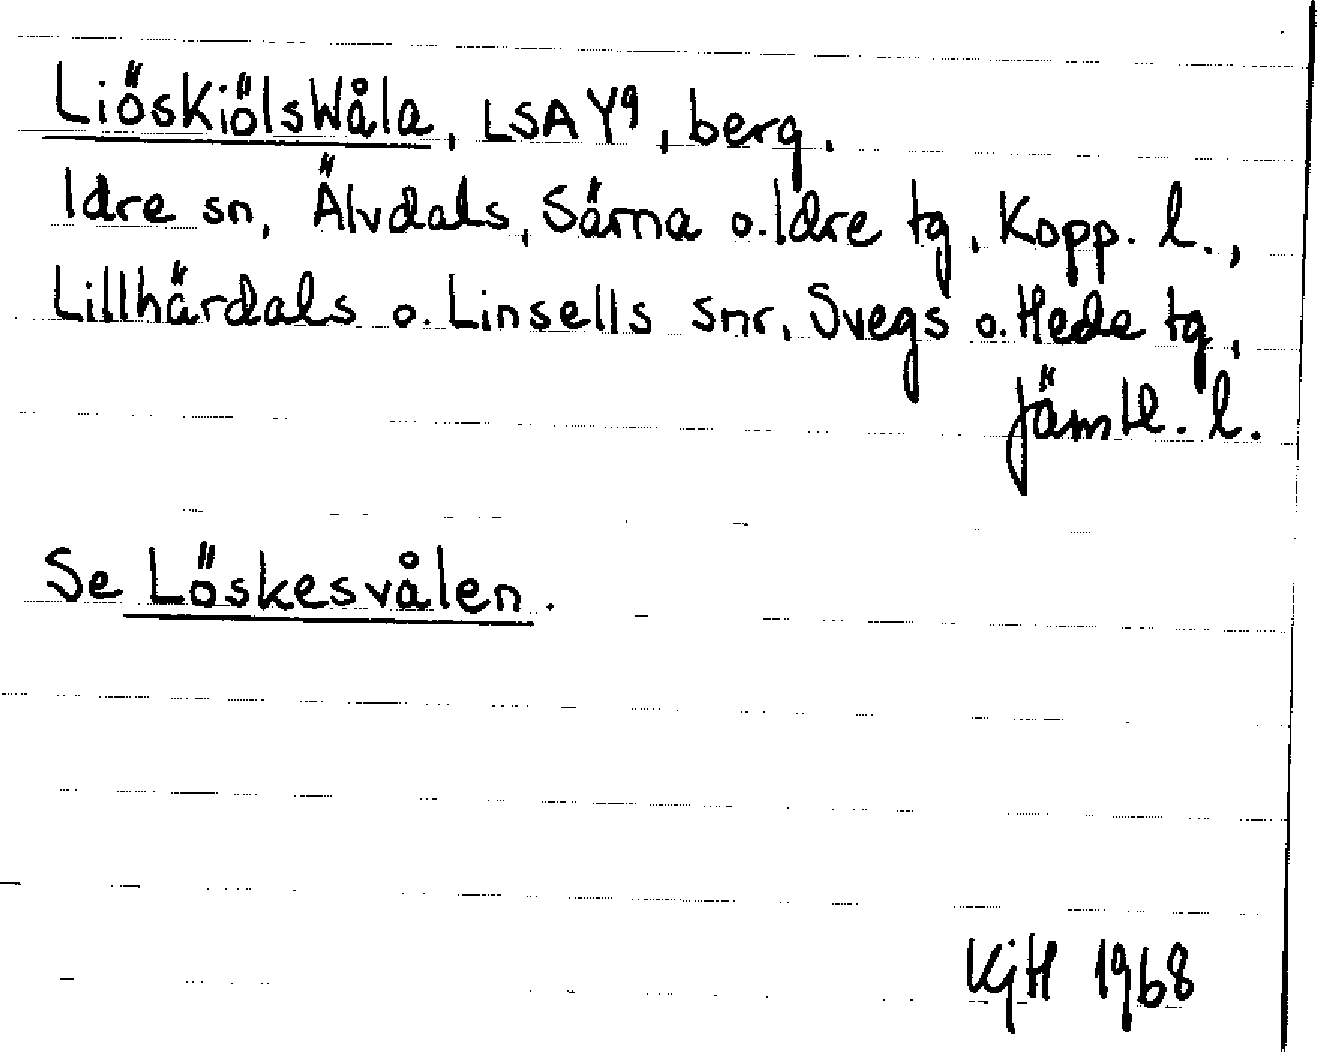 LiöskiölsWåla, LSA Y9, berg.
Idre sn, Älvdals, Särna o. Idre tg, Kopp. l.,
Lillhärdals o. Linsells snr, Svegs o. Hede tg,
Jämtl. l.
Se Löskesvålen.
KjH 1968